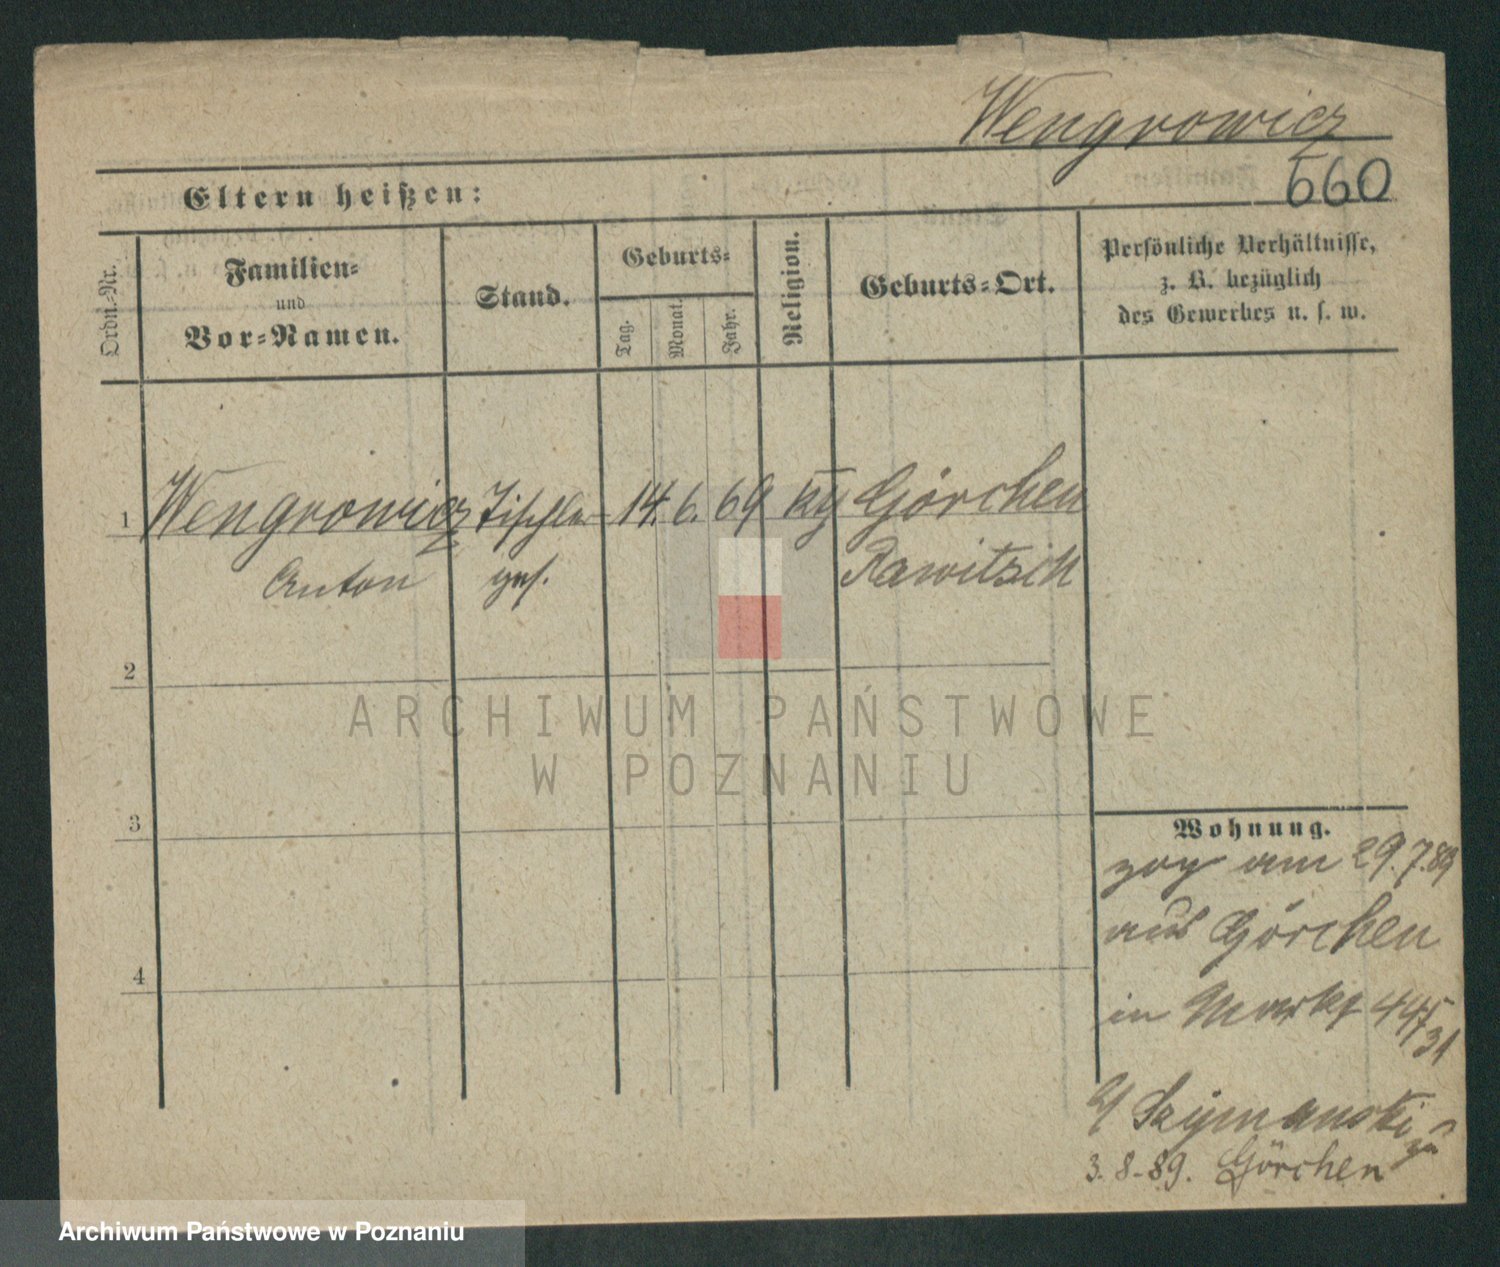 Wengrowicz
660
Eltern heißen:
Ordn.-Nr.
Familien-
und
Vor-Namen.
Stand.
Geburts-
Tag.
Monat.
Jahr.
Religion.
Geburts-Ort.
Persönliche Verhältnisse,
z. B. bezüglich
des Gewerbes u. s. w.
1 Wengrowicz Tischler 14. 6. 69 Görchen
Anton ges. Rawitsch
2
3
4
ARCHIWUM PAŃSTWOWE
W POZNANIU
Wohnung.
zog am 29.7.89
aus Görchen
in Markt 44
31
Szymanski
3. 8. 89. Görchen
Archiwum Państwowe w Poznaniu